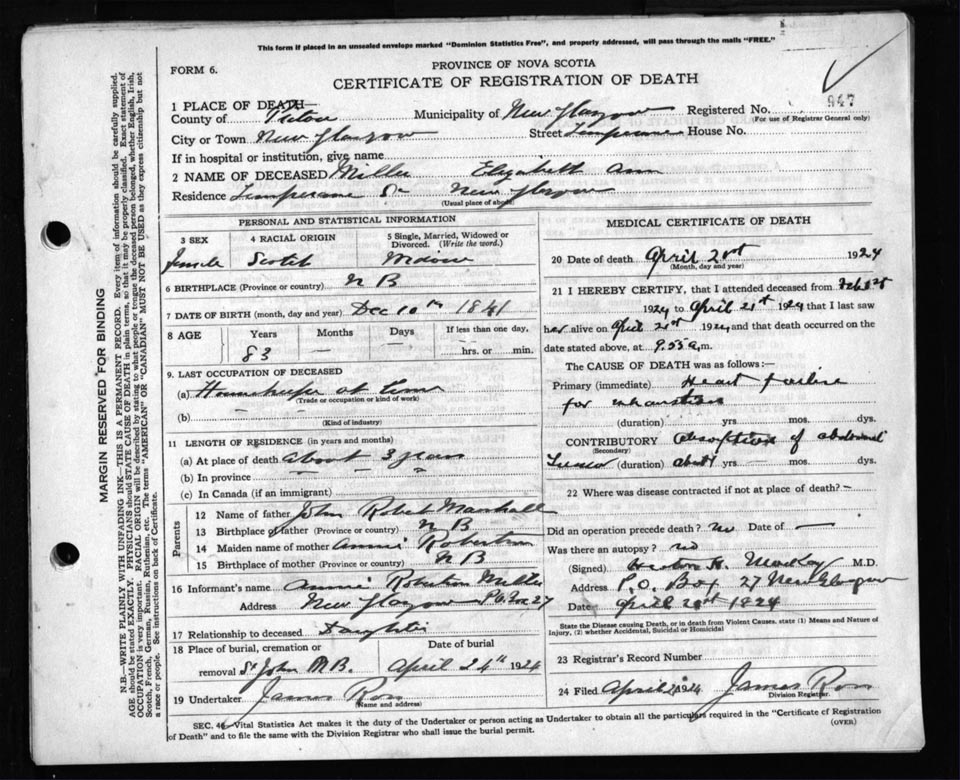 This form if placed in an unsealed envelope marked "Dominion Statistics Free", and properly addressed, will pass through the mails "FREE."
FORM 6.
PROVINCE OF NOVA SCOTIA
CERTIFICATE OF REGISTRATION OF DEATH
947
1 PLACE OF DEATH—
County of Pictou Municipality of New Glasgow Registered No.
(For use of Registrar General only)
City or Town New Glasgow Street Temperance House No.
If in hospital or institution, give name
2 NAME OF DECEASED Miller Elizabeth Ann
Residence Temperance St New Glasgow
(Usual place of abode)
PERSONAL AND STATISTICAL INFORMATION
3 SEX 4 RACIAL ORIGIN 5 Single, Married, Widowed or Divorced. (Write the word.)
Female Scotch Widow
6 BIRTHPLACE (Province or country) N B
7 DATE OF BIRTH (month, day and year) Dec 10th 1841
8 AGE Years Months Days If less than one day,
83 — — hrs. or min.
9. LAST OCCUPATION OF DECEASED
(a) Housekeeper at home
(Trade or occupation or kind of work)
(b) — —
(Kind of industry)
11 LENGTH OF RESIDENCE (in years and months)
(a) At place of death about 3 years
(b) In province " " "
(c) In Canada (if an immigrant)
Parents
12 Name of father John Robert Marshall
13 Birthplace of father (Province or country) N B
14 Maiden name of mother Annie Robertson
15 Birthplace of mother (Province or country) N B
16 Informant's name Annie Robertson Miller
Address New Glasgow P O Box 27
17 Relationship to deceased Daughter
18 Place of burial, cremation or removal St John N.B. Date of burial April 24th 1924
19 Undertaker James Ross
(Name and address)
MEDICAL CERTIFICATE OF DEATH
20 Date of death April 21st 1924
(Month, day and year)
21 I HEREBY CERTIFY, that I attended deceased from
1924 to April 21st 1924 that I last saw
her alive on April 21st 1924 and that death occurred on the
date stated above, at 9.55 a.m.
The CAUSE OF DEATH was as follows:—
Primary (immediate) Heart failure
for exhaustion
(duration) yrs — mos. dys.
CONTRIBUTORY Absorption of abdominal
(Secondary)
Tumor (duration) about 1 yrs — mos. dys.
22 Where was disease contracted if not at place of death? —
Did an operation precede death? no Date of —
Was there an autopsy? no
(Signed) H. McKay M.D.
Address P.O. Box 27 New Glasgow
Date April 21st 1924
State the Disease causing Death, or in death from Violent Causes. state (1) Means and Nature of Injury, (2) whether Accidental, Suicidal or Homicidal
23 Registrar's Record Number
24 Filed April 1924 James Ross
Division Registrar.
SEC. 46—Vital Statistics Act makes it the duty of the Undertaker or person acting as Undertaker to obtain all the particulars required in the "Certificate of Registration
of Death" and to file the same with the Division Registrar who shall issue the burial permit. (OVER)
MARGIN RESERVED FOR BINDING
N.B.—WRITE PLAINLY WITH UNFADING INK—THIS IS A PERMANENT RECORD. Every item of information should be carefully supplied.
AGE should be stated EXACTLY. PHYSICIANS should STATE CAUSE OF DEATH in plain terms, so that it may be properly classified. Exact statement of
OCCUPATION is very important. RACIAL ORIGIN will be described by stating to what people or tongue the deceased person belonged, whether English, Irish,
Scotch, French, German, Russian, Ruthenian, etc. The terms "AMERICAN" OR "CANADIAN" MUST NOT BE USED as they express citizenship but not
a race or people. See instructions on back of Certificate.